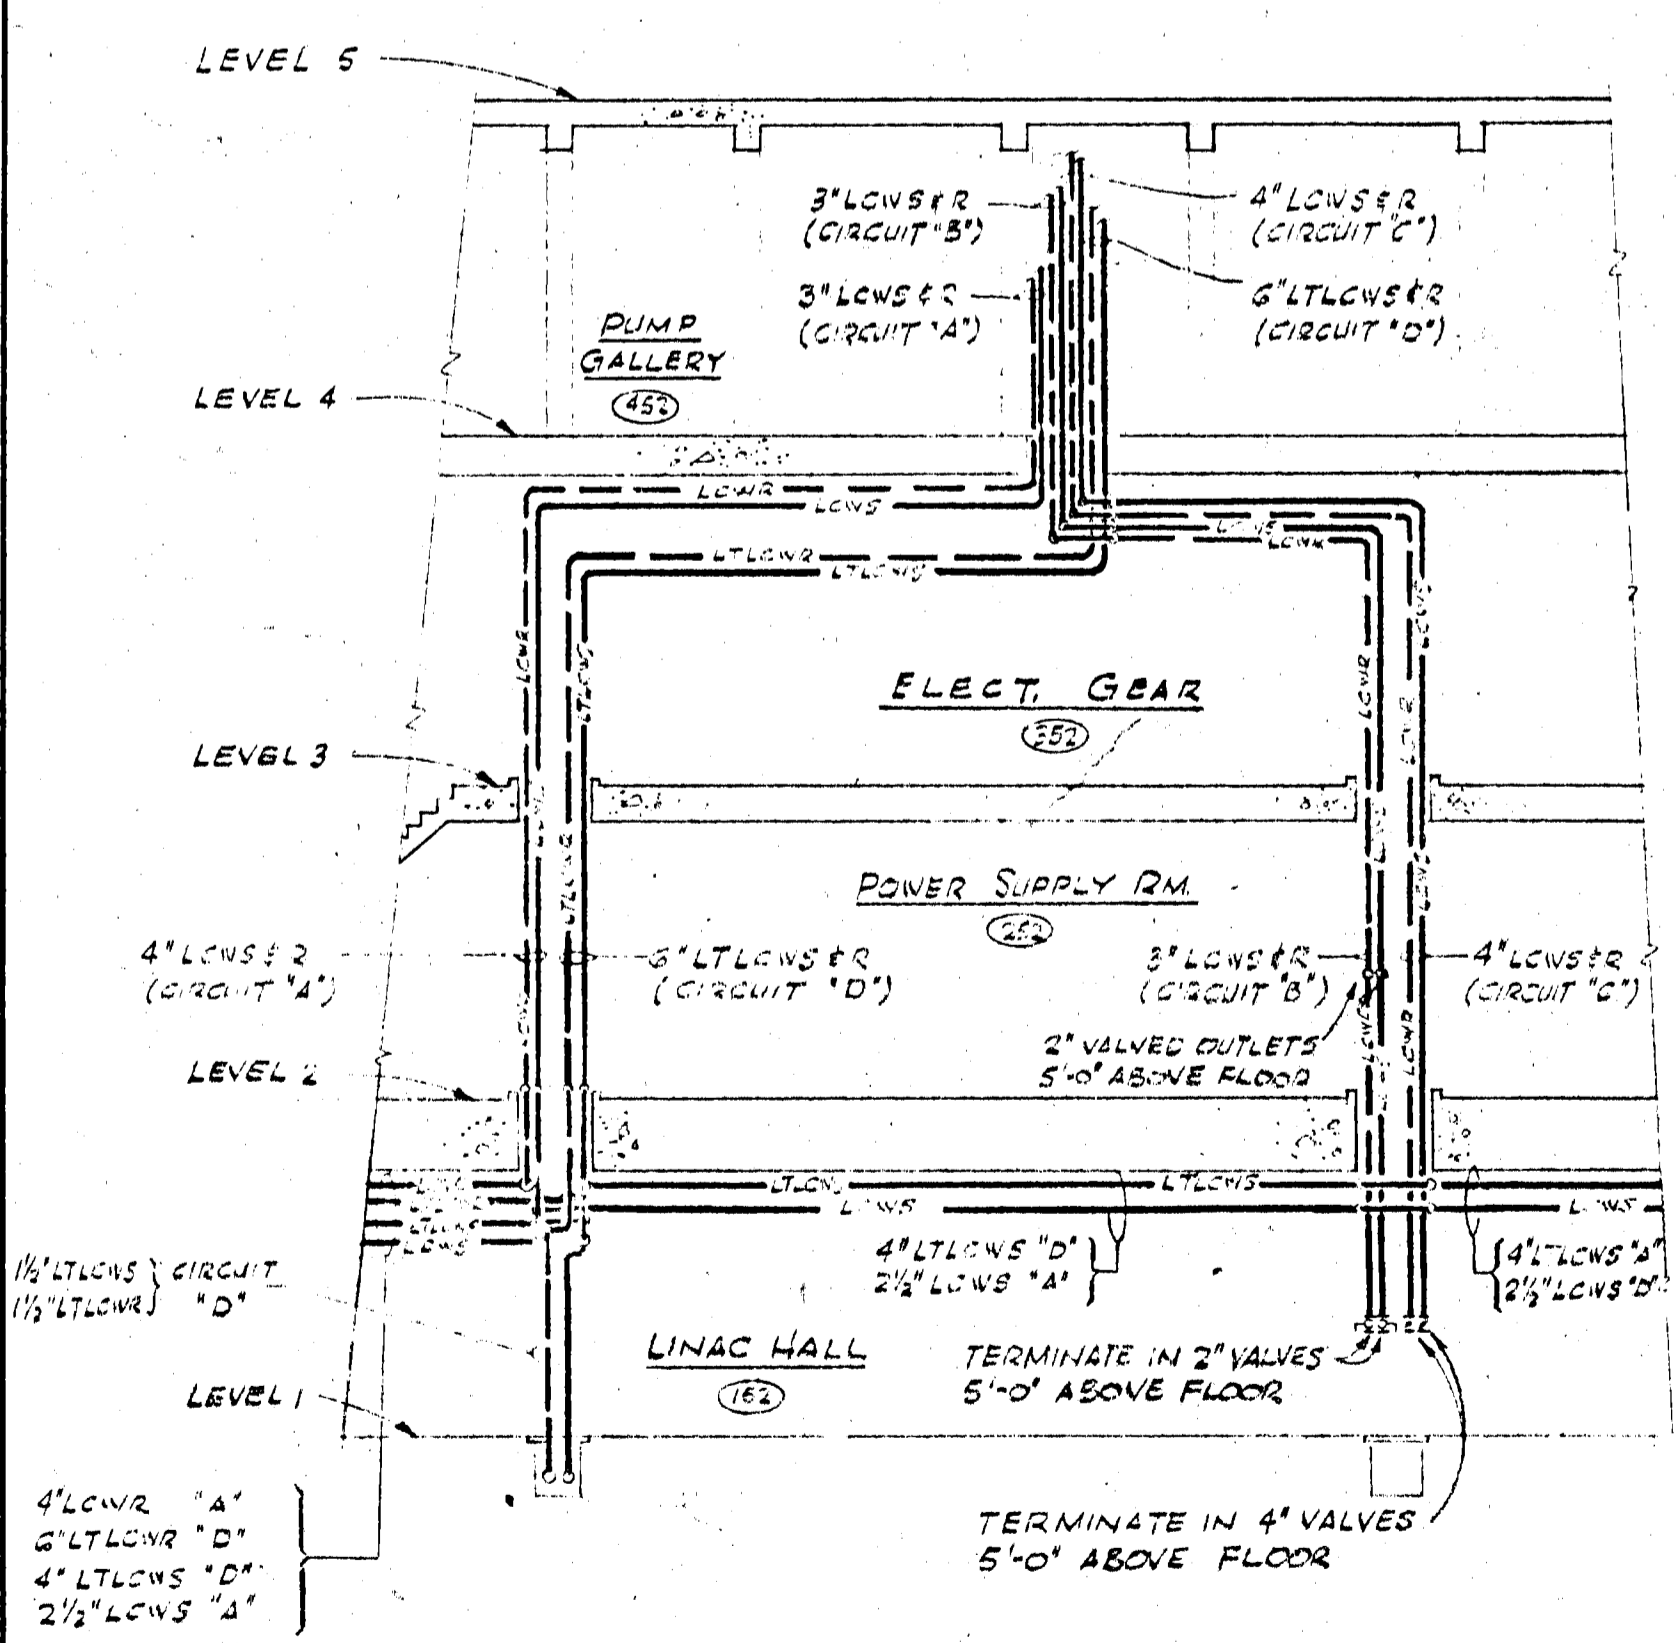 LEVEL 5
3" LCWS & R
(CIRCUIT "B")
4" LCWS & R
(CIRCUIT "C")
3" LCWS & R
(CIRCUIT "A")
6" LTLCWS & R
(CIRCUIT "D")
PUMP
GALLERY
452
LEVEL 4
LCWR
LCWS
LCWS
LCWR
LTLCWR
LTLCWS
LCWR
LTLCWS
LCWR
LCWS
ELECT. GEAR
352
LEVEL 3
LTLCWR
LCWS
POWER SUPPLY RM.
252
4" LCWS & R
(CIRCUIT "A")
6" LTLCWS & R
(CIRCUIT "D")
3" LCWS & R
(CIRCUIT "B")
4" LCWS & R
(CIRCUIT "C")
2" VALVED OUTLETS
5'-0" ABOVE FLOOR
LCWR
LEVEL 2
LTLCWS
LTLCWS
LCWS
LCWS
LTLCWS
LCWS
1½" LTLCWS } CIRCUIT
1½" LTLCWR } "D"
4" LTLCWS "D"
2½" LCWS "A"
4" LTLCWS "A"
2½" LCWS "D"
LINAC HALL
152
TERMINATE IN 2" VALVES
5'-0" ABOVE FLOOR
LEVEL 1
4" LCWR "A"
6" LTLCWR "D"
4" LTLCWS "D"
2½" LCWS "A"
TERMINATE IN 4" VALVES
5'-0" ABOVE FLOOR